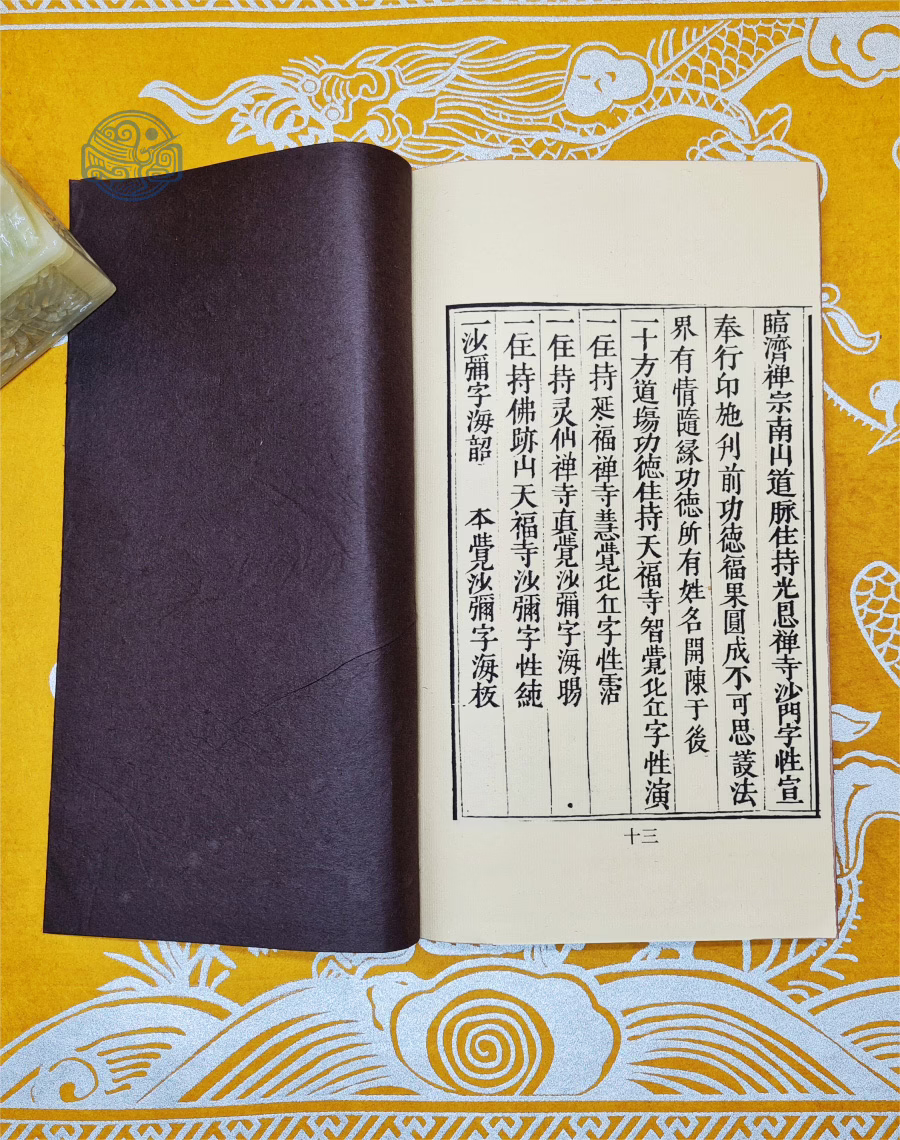 臨濟禅宗南山道脉住持光恩禅寺沙門字性宣
奉行印施刋前功徳福果圓成不可思議法
界有情隨縁功徳所有姓名開陳于後
一十方道塲功徳住持天福寺智覺比丘字性演
一住持延福禅寺慧覺比丘字性霑
一住持灵仙禅寺真覺沙彌字海賜
一住持佛跡山天福寺沙彌字性純
一沙彌字海韶 本覺沙彌字海板
十三